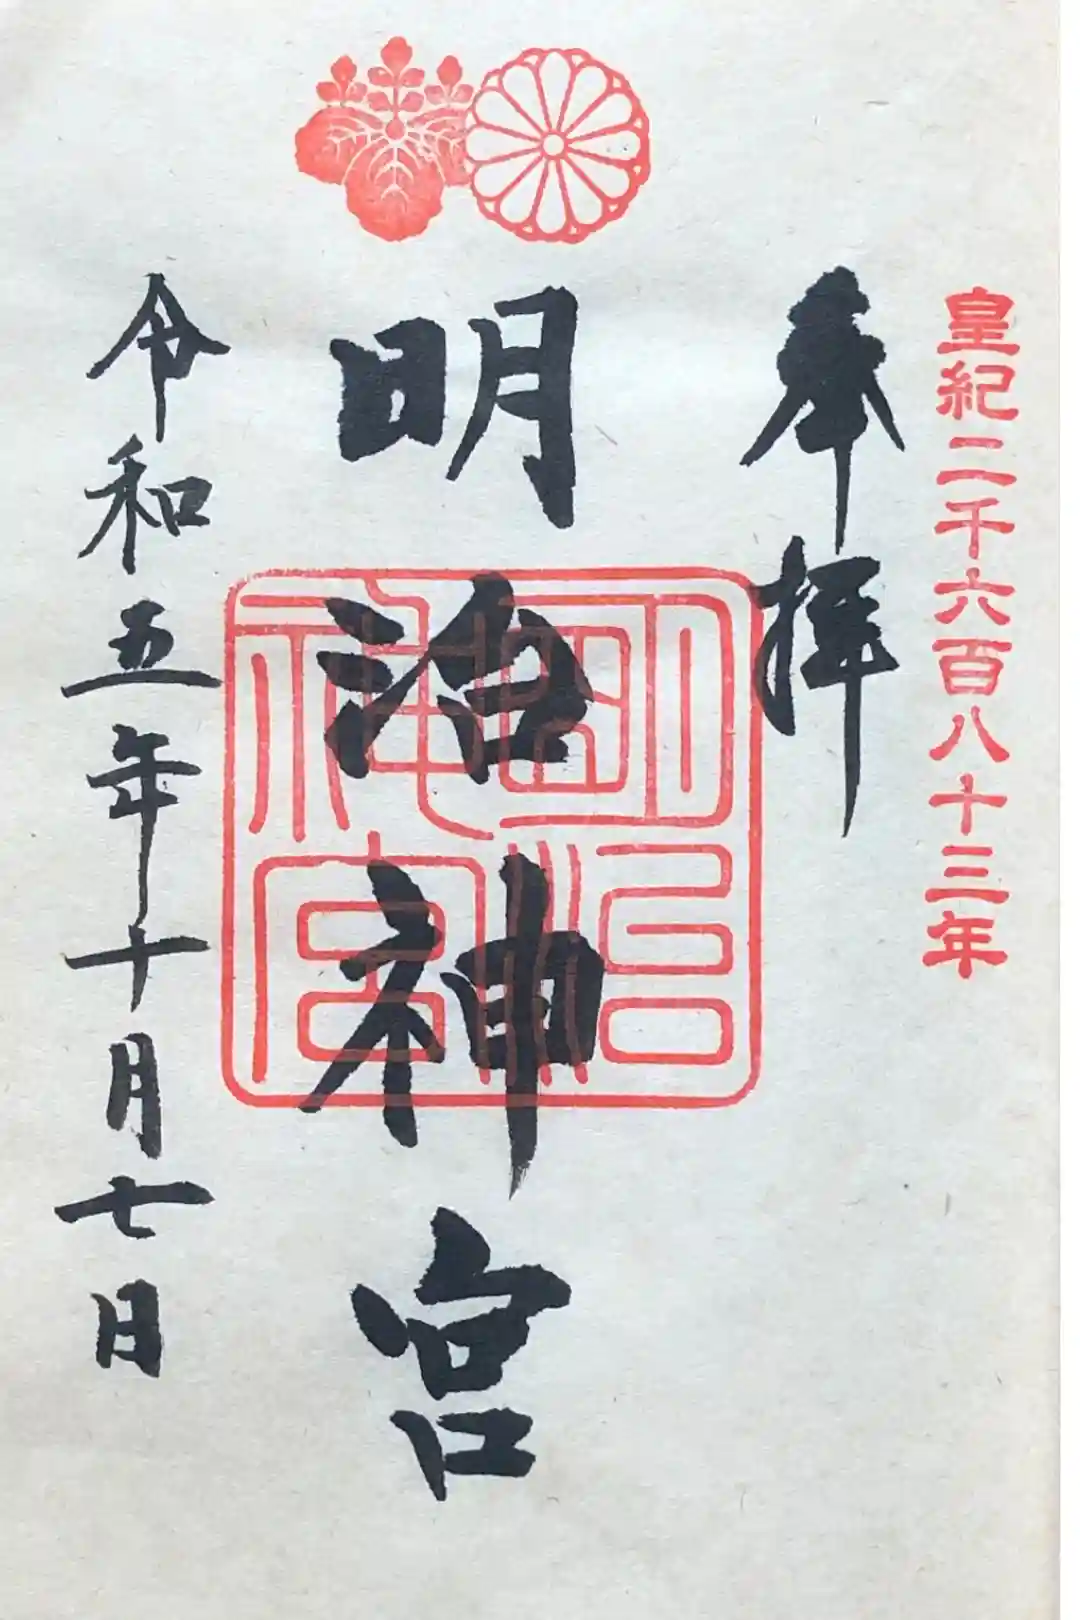 皇紀二千六百八十三年
奉拝
明治神宮
明治神宮
令和五年十月七日